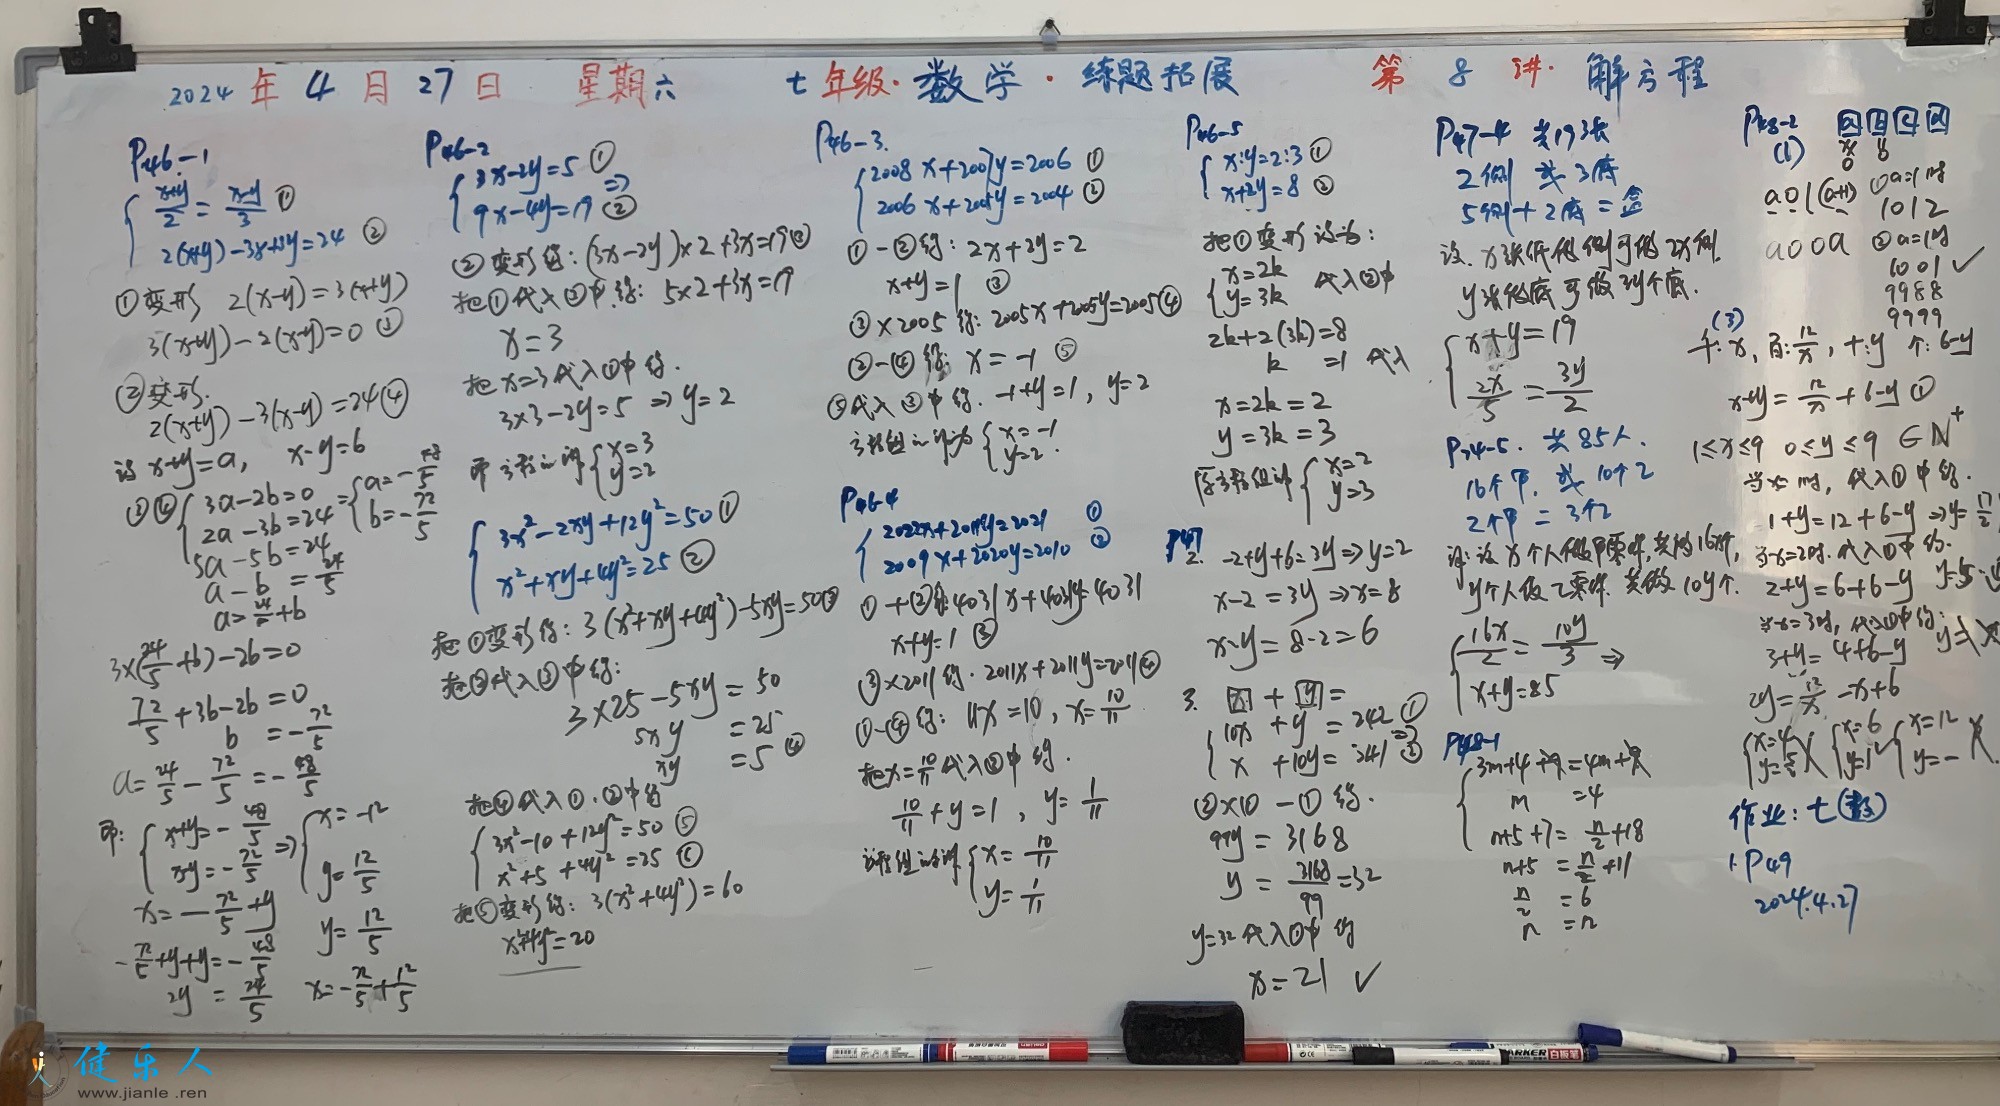 2024年4月27日 星期六 七年级·数学·练题拓展 第8讲·解方程
P46-1
(x+y)/2 = (x-y)/3 ①
2(x+y)-3x+3y=24 ②
①变形 2(x-y)=3(x+y)
3(x+y)-2(x-y)=0 ③
②变形.
2(x+y)-3(x-y)=24④
设x+y=a, x-y=b
③④ 3a-2b=0 = a=-48/5
2a-3b=24 b=-72/5
5a-5b=24
a-b=24/5
a=24/5+b
3×(24/5+b)-2b=0
72/5+3b-2b=0
b=-72/5
a=24/5-72/5=-48/5
即: x+y=-48/5 ⇒ x=-12
x-y=-72/5 y=12/5
x=-72/5+y y=12/5
-72/5+y+y=-48/5
2y=24/5 x=-72/5+12/5
P46-2
3x-2y=5 ①
⇒
9x-4y=19 ②
②变形得:(3x-2y)×2+3x=19③
把①代入③中得: 5×2+3x=19
x=3
把x=3代入①中得.
3×3-2y=5 ⇒y=2
即方程的解 x=3
y=2
3x²-2xy+12y²=50 ①
x²+xy+4y²=25 ②
把①变形得: 3(x²+xy+4y²)-5xy=50③
把②代入③中得:
3×25-5xy=50
5xy=25
xy=5 ④
把④代入①.②中得
3x²-10+12y²=50 ⑤
x²+5+4y²=25 ⑥
把⑤变形得: 3(x²+4y²)=60
x²+4y²=20
P46-3.
2008x+2007y=2006 ①
2006x+2005y=2004 ②
①-②得: 2x+2y=2
x+y=1 ③
③×2005得: 2005x+2005y=2005④
②-④得: x=-1 ⑤
⑤代入③中得. -1+y=1, y=2
方程组的解为 x=-1
y=2.
P46-4
2022x+2011y=2021 ①
2009x+2020y=2010 ②
①+②得:4031x+4031y=4031
x+y=1 ③
③×2011得. 2011x+2011y=2011④
①-④得: 11x=10, x=10/11
把x=10/11代入③中得.
10/11+y=1, y=1/11
方程组的解 x=10/11
y=1/11
P46-5
x:y=2:3 ①
x+2y=8 ②
把①变形设为:
x=2k
y=3k 代入②中
2k+2(3k)=8
k=1 代入
x=2k=2
y=3k=3
原方程组的解 x=2
y=3
P47
2. -2+y+6=3y⇒y=2
x-2=3y⇒x=8
x-y=8-2=6
3. x + y =
10x+y=242 ①
x+10y=341 ②
②×10-①得.
99y=3168
y=3168/99=32
y=32代入①中得
x=21 ✓
P47-4 共19张
2侧 或 3底
5侧+2底=盒
设.x张纸做侧可做2x侧.
y张做底可做3y个底.
x+y=19
2x/5=3y/2
P34-5. 共85人.
16个甲. 或 10个乙
2个甲=3个乙
详:设x个人做甲零件,共做16x个,
y个人做乙零件. 共做10y个.
16x/2=10y/3 ⇒
x+y=85
P48-1
3m+4+9=4m+9
m=4
n+5+7=n/2+18
n+5=n/2+11
n/2=6
n=12
P48-2
(1)
a 0 1 (a+1) ①a=1时
1012
a00a ②a=1时
1001 ✓
9988
9999
(3)
千:x, 百:12/x, 十:y 个:6-y
x+y=12/x+6-y ①
1≤x≤9 0≤y≤9 ∈N⁺
当x=1时, 代入①中得.
1+y=12+6-y ⇒y=17/2
当x=2时. 代入①中得.
2+y=6+6-y y=5.
当x=3时, 代入①中得:
3+y=4+6-y
2y=12/x-x+6
x=4 x=6 x=12
y= y=1 y=-
作业:七(数)
1.P49
2024.4.27
健乐人
www.jianle.ren